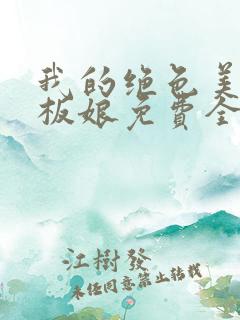 我的绝色美
板娘免費全
江樹發
未经同意禁止转载